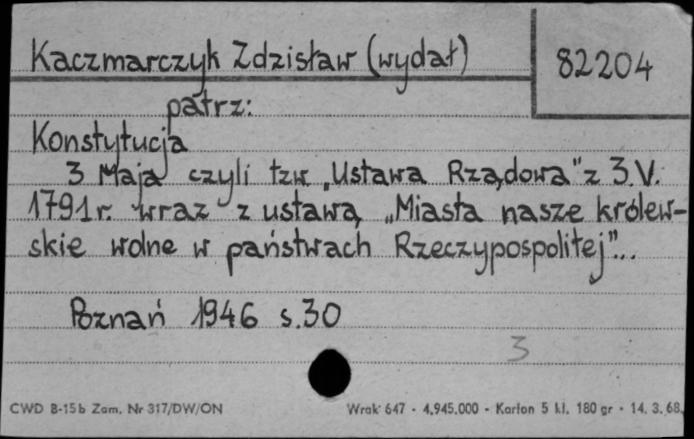 Kaczmarczyk Zdzisław (wydał)
82204
patrz:
Konstytucja
3 Maja czyli tzw „Ustawa Rządowa" z 3.V.
1791 r. wraz z ustawą „Miasta nasze królew-
skie wolne w państwach Rzeczypospolitej"...
Poznań 1946 s.30
3
CWD B-15b Zam. Nr 317/DW/ON
Wrak 647 - 4.945.000 - Karton 5 kl. 180 gr - 14. 3. 68.